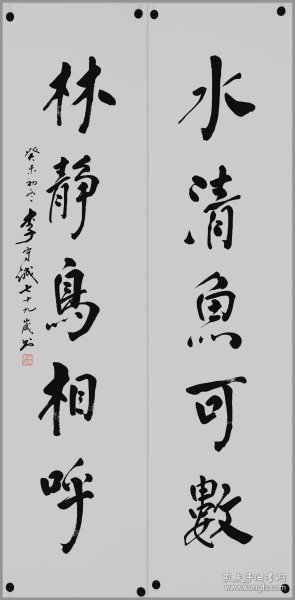 水清魚可數
林靜鳥相呼
癸未初冬李守誠七十九歲书
孔夫子旧书网
www.kongfz.com